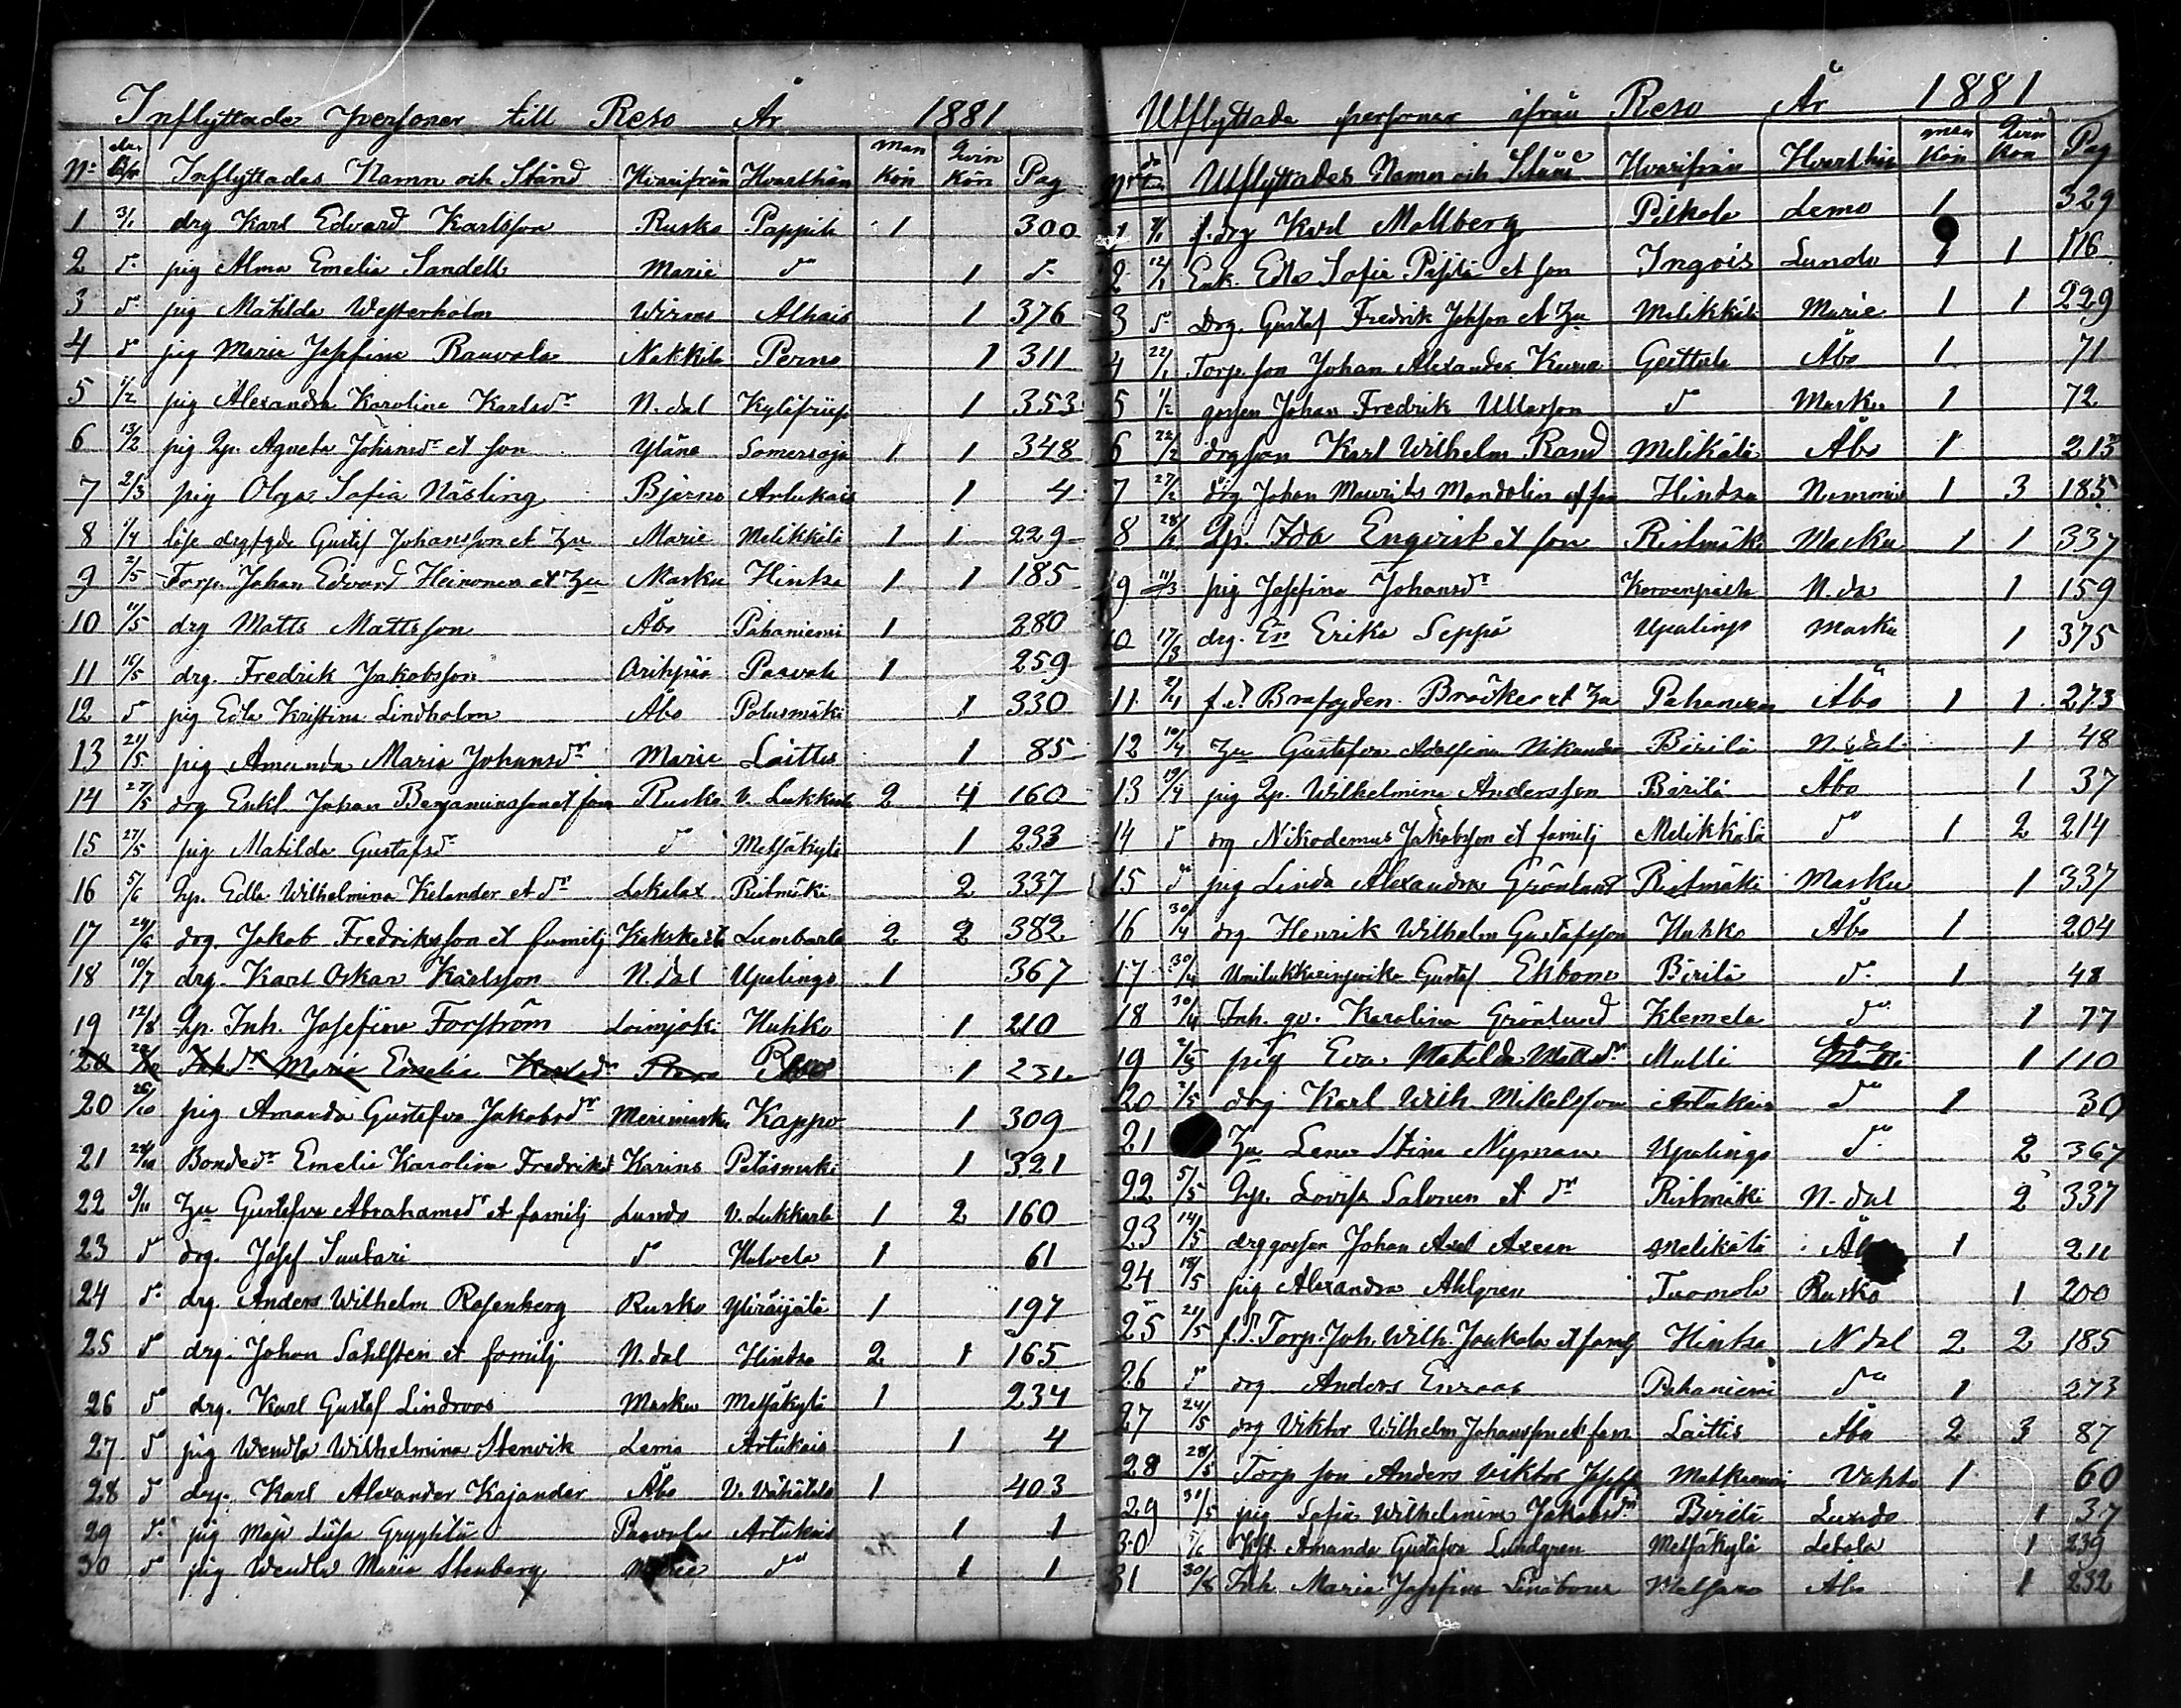 Inflyttade personer till Reso År 1881
No dat. Inflyttades Namn och Stånd Hvarifrån Hvarthän man kön Qvin kön Pag
1 3/1 drg Karl Edvard Karlsson Rusko Pappila 1 300
2 do pig Alma Emelia Sandell Marie do 1 do
3 do pig Matilda Westerholm Wirmo Alhais 1 376
4 do pig Maria Josefina Rauvola Nakkila Perno 1 311
5 1/2 pig Alexandra Karolina Karlsdr N.dal 1 353
6 13/2 pig Qp. Agneta Johansdr et son Yläne Somersoja 1 1 348
7 2/3 pig Olga Sofia Näsling Bjerno Artukais 1 4
8 1/4 löse drg Gustaf Johansson et hu Marie Melikkälä 1 1 229
9 2/5 Torp. Johan Edvard Heinonen et hu Masku Hintsa 1 1 185
10 11/5 drg Matts Mattsson Åbo Pahaniemi 1 280
11 15/5 drg. Fredrik Jakobsson Orihpää Paavola 1 259
12 do pig Edla Kristina Lindholm Åbo Polusmäki 1 330
13 21/5 pig Amanda Maria Johansdr Marie Laittis 1 85
14 27/5 drg Enkl. Johan Benjaminsson et fam Rusko V. Lukkarla 2 4 160
15 27/5 pig Matilda Gustafsdr do Metsäkylä 1 233
16 5/6 Qp. Edla Wilhelmina Kelander et dr Lokalax Ristmäki 2 337
17 24/6 drg. Jakob Fredriksson et familj Kakskerta Lumbarla 2 2 382
18 10/7 drg. Karl Oskar Karlsson N.dal Upalingo 1 367
19 12/8 Qp. Inh. Josefina Forström Loimjoki Huhko 1 210
20 Inh dr Maria Emelia Karlsdr Reso 1 231
20 26/10 pig Amanda Gustafva Jakobsdr Merimasku Kappo 1 309
21 28/10 Bondedr Emelia Karolina Fredriksd Karins Petäsmäki 1 321
22 9/11 Hu Gustafva Abrahamsdr et familj Lundo V. Lukkarla 1 2 160
23 do drg. Josef Suutari do Halvela 1 61
24 do drg. Anders Wilhelm Rosenberg Rusko Yliräijälä 1 197
25 do drg. Johan Sahlsten et familj N.dal Hintsa 2 1 165
26 do drg. Karl Gustaf Lindroos Masku Metsäkylä 1 234
27 do pig Wendla Wilhelmina Stenvik Lemo Artukais 1 4
28 do drg. Karl Alexander Kajander Åbo V. Wäkälälä 1 403
29 do pig Maja Lisa Paavola Artukais 1 1
30 do pig Wendla Maria Stenberg Marie do 1 1
Utflyttade personer ifrån Reso År 1881
No dat. Utflyttades Namn och Stånd Hvarifrån Hvarthän man kön Qvin kön Pag
1 f. drg Karl Mallberg Piskola Lemo 1 329
2 12/1 Enk. Edla Sofia et son Ingois Lundo 1 1 116
3 do Drg. Gustaf Fredrik Johsson et hu Melikkälä Marie 1 1 229
4 22/1 Torp. son Johan Alexander Åbo 1 71
5 1/2 gossen Johan Fredrik Ullasson do Masku 1 72
6 22/2 drg son Karl Wilhelm Rand Melikälä Åbo 1 213
7 27/2 drg Johan Maurits Mandolin et fam Hintsa Nummis 1 3 185
8 28/2 Qp. Ida Enqvist et son Ristmäki Masku 1 1 337
9 11/3 pig Josefina Johansdr Korvenpää N.da 1 159
10 17/3 drg. En Erika Seppä Upalingo Masku 1 375
11 2/4 f.d. Bröcker et hu Pahaniemi Åbo 1 1 273
12 10/4 Hu Gustafva Adolfina Nikander Birilä N.dal 1 48
13 19/4 pig Qp. Wilhelmina Andersson Birilä Åbo 1 37
14 do drg Nikodemus Jakobsson et familj Melikkälä do 1 2 214
15 do pig Linda Alexandra Grönlund Ristmäki Masku 1 337
16 30/4 drg. Henrik Wilhelm Gustafsson Huhko Åbo 1 204
17 30/4 Gustaf Ekbom Birilä do 1 48
18 30/4 Inh. qv. Karolina Grönlund Klemela do 1 77
19 2/5 pig Eva Matilda Mattsdr Mulli 1 110
20 2/5 drg Karl Wilh. Mikelsson Artukais do 1 30
21 Hu Lena Stina Nyman Upalingo do 2 367
22 5/5 Qp. Lovisa Salonen et dr Ristmäki N.dal 2 337
23 14/5 drg gossen Johan Axel Axeen Melikälä Åbo 1 211
24 19/5 pig Alexandra Ahlgren Tuomola Rusko 1 200
25 21/5 f.d. Torp. Joh. Wilh. Jaakola et familj Hintsa N.dal 2 2 185
26 do drg Anders Enroos Pahaniemi do 1 273
27 24/5 drg Viktor Wilhelm Johansson et fam Laittis Åbo 2 3 87
28 28/5 Torp son Anders Viktor Josefs Vahto 1 60
29 31/5 pig Sofia Wilhelmina Jakobsdr Birilä Lundo 1 37
30 5/6 Amanda Gustafva Lundgren Metsäkylä Letala 1 239
31 30/8 Inh. Maria Josefina Åbo 1 232